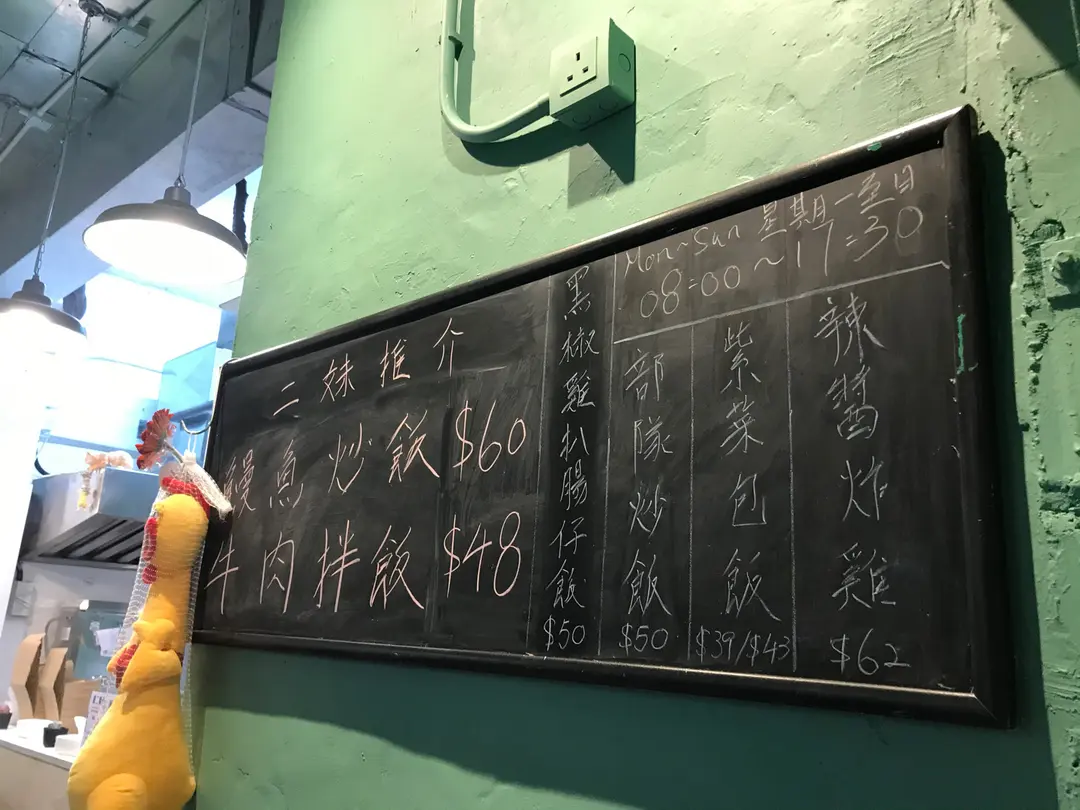 二妹推介
鰻魚炒飯 $60
牛肉拌飯 $48
黑椒雞扒腸仔飯 $50
Mon~Sun 星期一至日
08:00~17:30
部隊炒飯 $50
紫菜包飯 $39/$43
辣醬炸雞 $62